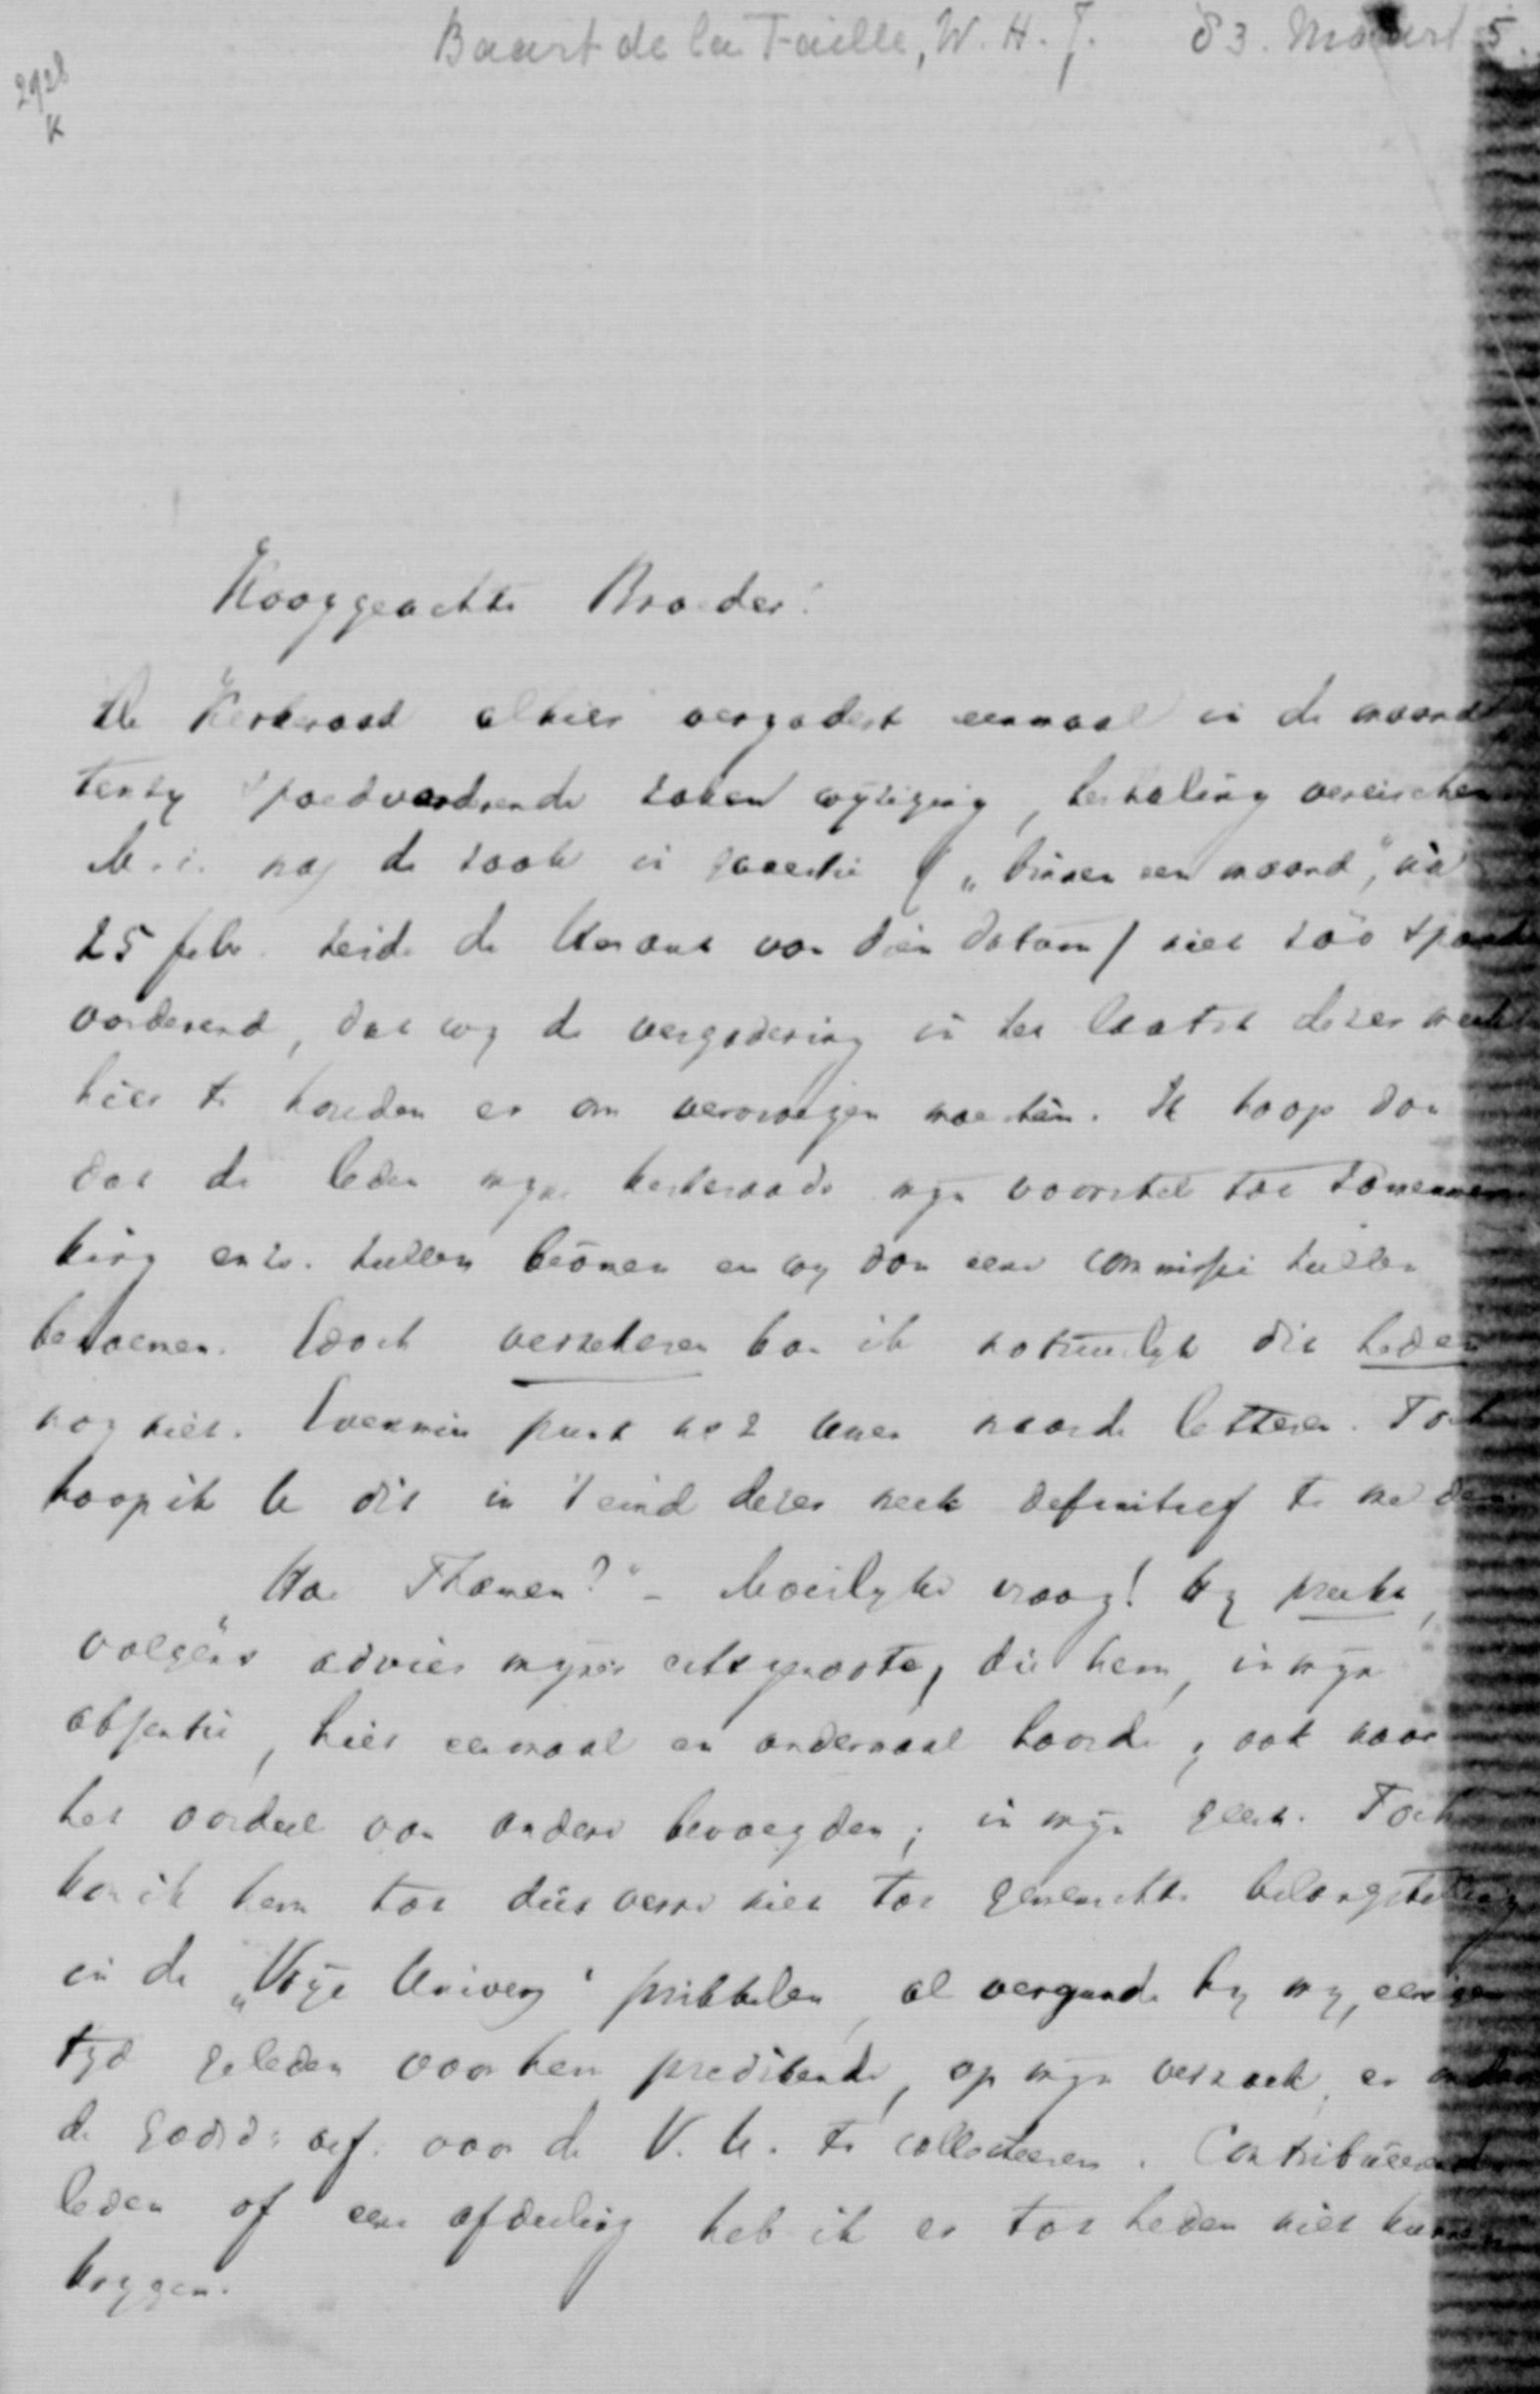 Baart de la Faille, W. H. J. 83. Maart 5.
2928
K
Hooggeachte Broeder!
De Kerkeraad alhier vergadert eenmaal in de maand
tenzy spoedvorderende zaken wyziging, herhaling vereischen
M.i. nog de zaak in quaestie ( „binnen een maand", na
25 febr. zeide de Heraut van dien datum) niet zóó spoed
vorderend, dat wy de vergadering in het laatst dezer week
hier te houden er om vervroegen moesten. Ik hoop dan
dat de leden myns kerkeraads myn voorstel tot samenwer
king enz. zullen beämen en wy dan eene commissie zullen
benoemen. Doch verzekeren kan ik natuurlyk dit heden
nog niet. Evenmin punt no 2 Uwer waarde letteren. Toch
hoop ik U dit in 't eind dezer week definitief te melden
„Hoe Thamen?" – Moeilyke vraag! Hy preekt,
volgens advies myner echtgenoote, die hem, in myn
absentie, hier eenmaal en andermaal hoorde, ook naar
het oordeel van andere bevoegden, in myn geest. Toch
kon ik hem tot dus verre niet tot gewenschte belangstelling
in de „Vrye Univers" prikkelen, al vergunde hy my, eenigen
tyd geleden voor hem predikende, op myn verzoek, er onder
de godsd: oef. voor de V. U. te collecteeren. Contribueerende
leden of eene afdeeling heb ik er tot heden niet kunnen
krygen.